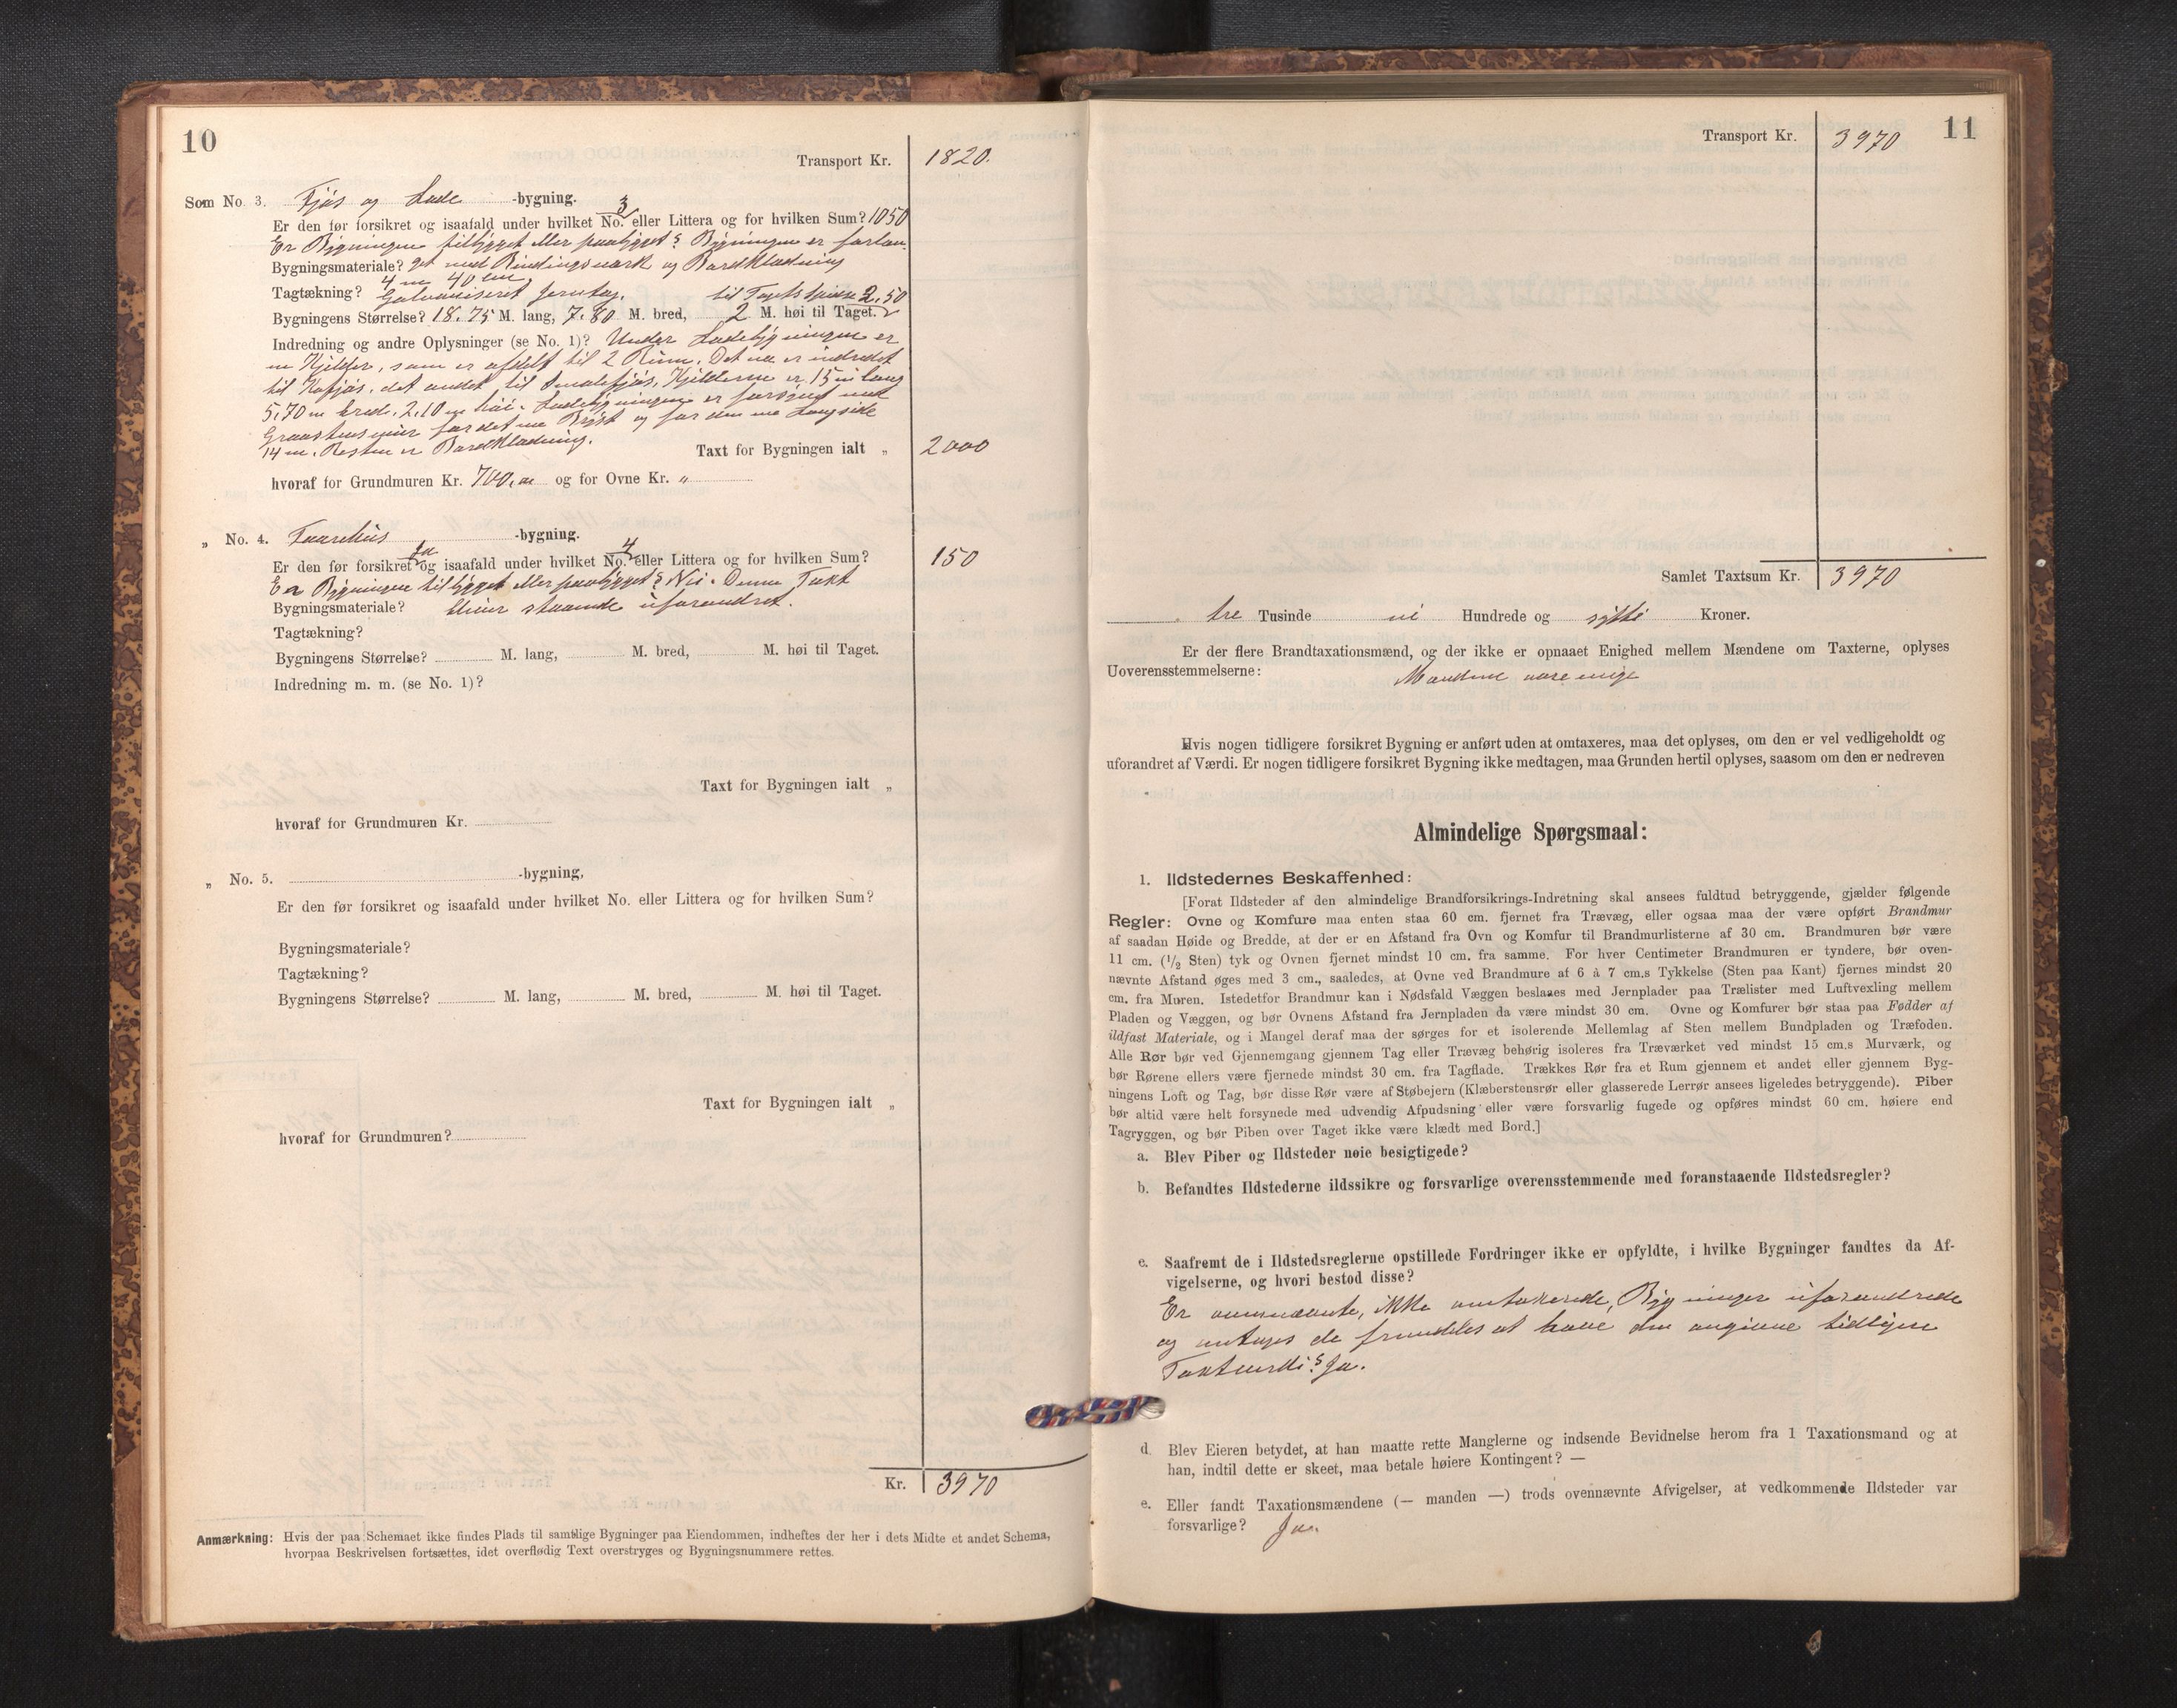 10
Transport Kr. 1820.
Som No. 3. Fjøs og Lade -bygning.
Er den før forsikret og isaafald under hvilket No. 3 eller Littera og for hvilken Sum? 1050
Er Bygningen tilbygget eller paabygget? Bygningen er forlæn-
Bygningsmateriale? get med Bindingsværk og Bordklædning
4 m 40 cm
Tagtækning? Galvaniseret Jerntag. til Tagets Spidse 2.50
Bygningens Størrelse? 18.75 M. lang, 7.80 M. bred, 2 M. høi til Taget.
Indredning og andre Oplysninger (se No. 1)? Under Ladebygningen er
en Kjelder, som er afdelt til 2 Rum. Det ene er indredet
til Kofjøs, det andet til Smalefjøs, Kjelderne er 15 m lang
5,70 m bred, 2,10 m høi. Ladebygningen er forsynet med
Graastensmur for det ene Bryst og for den ene Langside
14 m. Resten er Bordklædning.
Taxt for Bygningen ialt „ 2000
hvoraf for Grundmuren Kr. 700,00 og for Ovne Kr. „
„ No. 4. Taarehus -bygning.
Er den før forsikret Ja og isaafald under hvilket No. 4 eller Littera og for hvilken Sum? 150
Er Bygningen tilbygget eller paabygget? Nei. Denne Takt
Bygningsmateriale? bliver staaende uforandret.
Tagtækning?
Bygningens Størrelse? M. lang, M. bred, M. høi til Taget.
Indredning m. m. (se No. 1)?
Taxt for Bygningen ialt „
hvoraf for Grundmuren Kr.
„ No. 5. -bygning,
Er den før forsikret og isaafald under hvilket No. eller Littera og for hvilken Sum?
Bygningsmateriale?
Tagtækning?
Bygningens Størrelse? M. lang, M. bred, M. høi til Taget.
Taxt for Bygningen ialt „
hvoraf for Grundmuren?
Kr. 3970
Anmærkning: Hvis der paa Schemaet ikke findes Plads til samtlige Bygninger paa Eiendommen, indheftes der her i dets Midte et andet Schema,
hvorpaa Beskrivelsen fortsættes, idet overflødig Text overstryges og Bygningsnummere rettes.
11
Transport Kr. 3970
Samlet Taxtsum Kr. 3970
tre Tusinde ni Hundrede og sytti Kroner.
Er der flere Brandtaxationsmænd, og der ikke er opnaaet Enighed mellem Mændene om Taxterne, oplyses
Uoverensstemmelserne: Mændene vare enige
Hvis nogen tidligere forsikret Bygning er anført uden at omtaxeres, maa det oplyses, om den er vel vedligeholdt og
uforandret af Værdi. Er nogen tidligere forsikret Bygning ikke medtagen, maa Grunden hertil oplyses, saasom om den er nedreven
Almindelige Spørgsmaal:
1. Ildstedernes Beskaffenhed:
[Forat Ildsteder af den almindelige Brandforsikrings-Indretning skal ansees fuldtud betryggende, gjælder følgende
Regler: Ovne og Komfure maa enten staa 60 cm. fjernet fra Trævæg, eller ogsaa maa der være opført Brandmur
af saadan Høide og Bredde, at der er en Afstand fra Ovn og Komfur til Brandmurlisterne af 30 cm. Brandmuren bør være
11 cm. (1/2 Sten) tyk og Ovnen fjernet mindst 10 cm. fra samme. For hver Centimeter Brandmuren er tyndere, bør oven-
nævnte Afstand øges med 3 cm., saaledes, at Ovne ved Brandmure af 6 à 7 cm.s Tykkelse (Sten paa Kant) fjernes mindst 20
cm. fra Muren. Istedetfor Brandmur kan i Nødsfald Væggen beslaaes med Jernplader paa Trælister med Luftvexling mellem
Pladen og Væggen, og bør Ovnens Afstand fra Jernpladen da være mindst 30 cm. Ovne og Komfurer bør staa paa Fødder af
ildfast Materiale, og i Mangel deraf maa der sørges for et isolerende Mellemlag af Sten mellem Bundpladen og Træfoden.
Alle Rør bør ved Gjennemgang gjennem Tag eller Trævæg behørig isoleres fra Træværket ved mindst 15 cm.s Murværk, og
bør Rørene ellers være fjernede mindst 30 cm. fra Tagflade. Trækkes Rør fra et Rum gjennem et andet eller gjennem Byg-
ningens Loft og Tag, bør disse Rør være af Støbejern (Klæberstensrør eller glasserede Lerrør ansees ligeledes betryggende). Piber
bør altid være helt forsynede med udvendig Afpudsning eller være forsvarlig fugede og opføres mindst 60 cm. høiere end
Tagryggen, og bør Piben over Taget ikke være klædt med Bord.]
a. Blev Piber og Ildsteder nøie besigtigede?
b. Befandtes Ildstederne ildssikre og forsvarlige overensstemmende med foranstaaende Ildstedsregler?
c. Saafremt de i Ildstedsreglerne opstillede Fordringer ikke er opfyldte, i hvilke Bygninger fandtes da Af-
vigelserne, og hvori bestod disse?
Er ovennævnte, ikke omtakserede, Bygninger uforandrede
og antages de fremdeles at have den angivne tidligere
Taktværdi? Ja.
d. Blev Eieren betydet, at han maatte rette Manglerne og indsende Bevidnelse herom fra 1 Taxationsmand og at
han, indtil dette er skeet, maa betale høiere Kontingent? —
e. Eller fandt Taxationsmændene (— manden —) trods ovennævnte Afvigelser, at vedkommende Ildsteder var
forsvarlige? Ja.